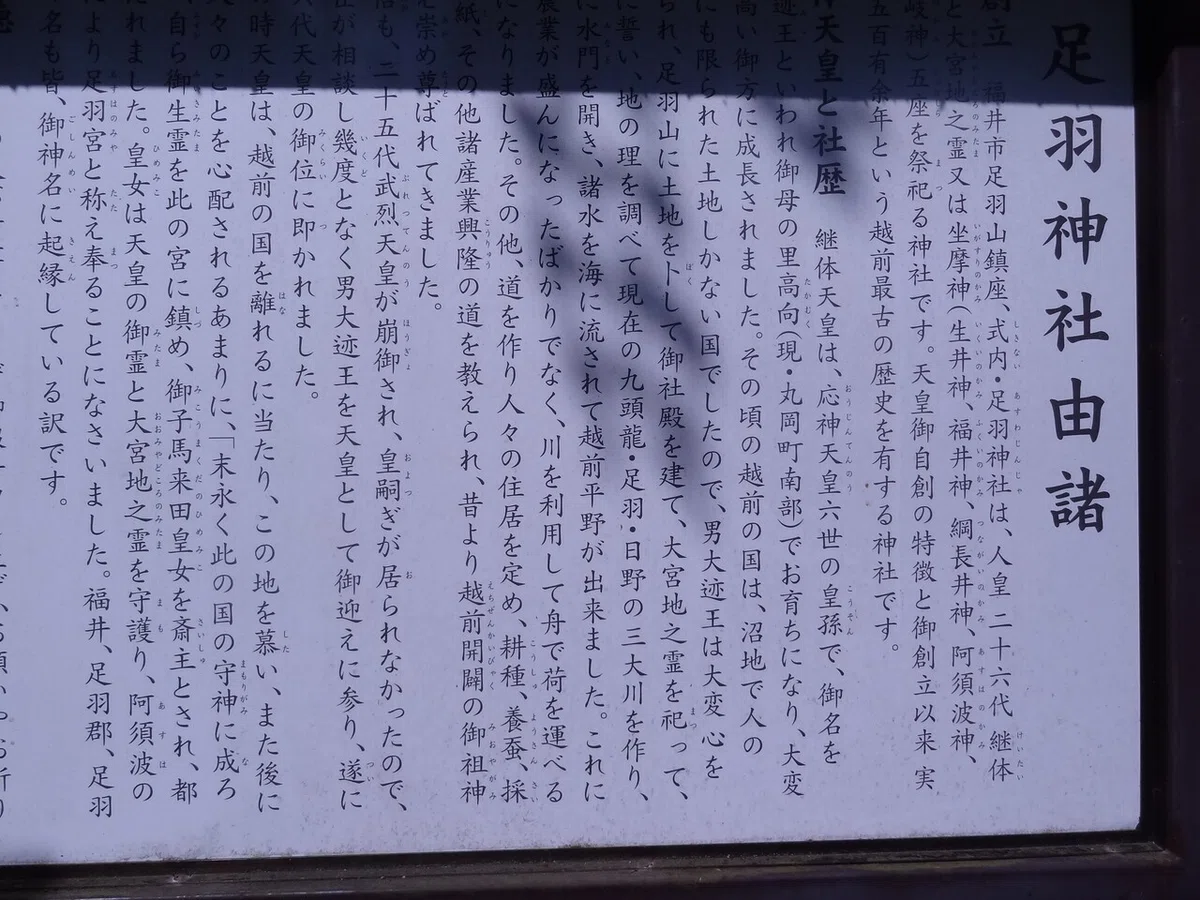 足羽神社由諸
創立 福井市足羽山鎮座、式内・足羽神社は、人皇二十六代継体
と大宮地之霊又は坐摩神(生井神、福井神、綱長井神、阿須波神、
岐神)五座を祭祀る神社です。天皇御自創の特徴と御創立以来実
五百有余年という越前最古の歴史を有する神社です。
天皇と社歴 継体天皇は、応神天皇六世の皇孫で、御名を
迹王といわれ御母の里高向(現・丸岡町南部)でお育ちになり、大変
高い御方に成長されました。その頃の越前の国は、沼地で人の
にも限られた土地しかない国でしたので、男大迹王は大変心を
られ、足羽山に土地を卜して御社殿を建て、大宮地之霊を祀って、
に誓い、地の理を調べて現在の九頭龍・足羽・日野の三大川を作り、
に水門を開き、諸水を海に流されて越前平野が出来ました。これに
農業が盛んになったばかりでなく、川を利用して舟で荷を運べる
になりました。その他、道を作り人々の住居を定め、耕種、養蚕、採
紙、その他諸産業興隆の道を教えられ、昔より越前開闢の御祖神
え崇め尊ばれてきました。
も、二十五代武烈天皇が崩御され、皇嗣ぎが居られなかったので、
が相談し幾度となく男大迹王を天皇として御迎えに参り、遂に
代天皇の御位に即かれました。
時天皇は、越前の国を離れるに当たり、この地を慕い、また後に
々のことを心配されるあまりに、「末永く此の国の守神に成ろ
、自ら御生霊を此の宮に鎮め、御子馬来田皇女を斎主とされ、都
れました。皇女は天皇の御霊と大宮地之霊を守護り、阿須波の
により足羽宮と称え奉ることになさいました。福井、足羽郡、足羽
名も皆、御神名に起縁している訳です。